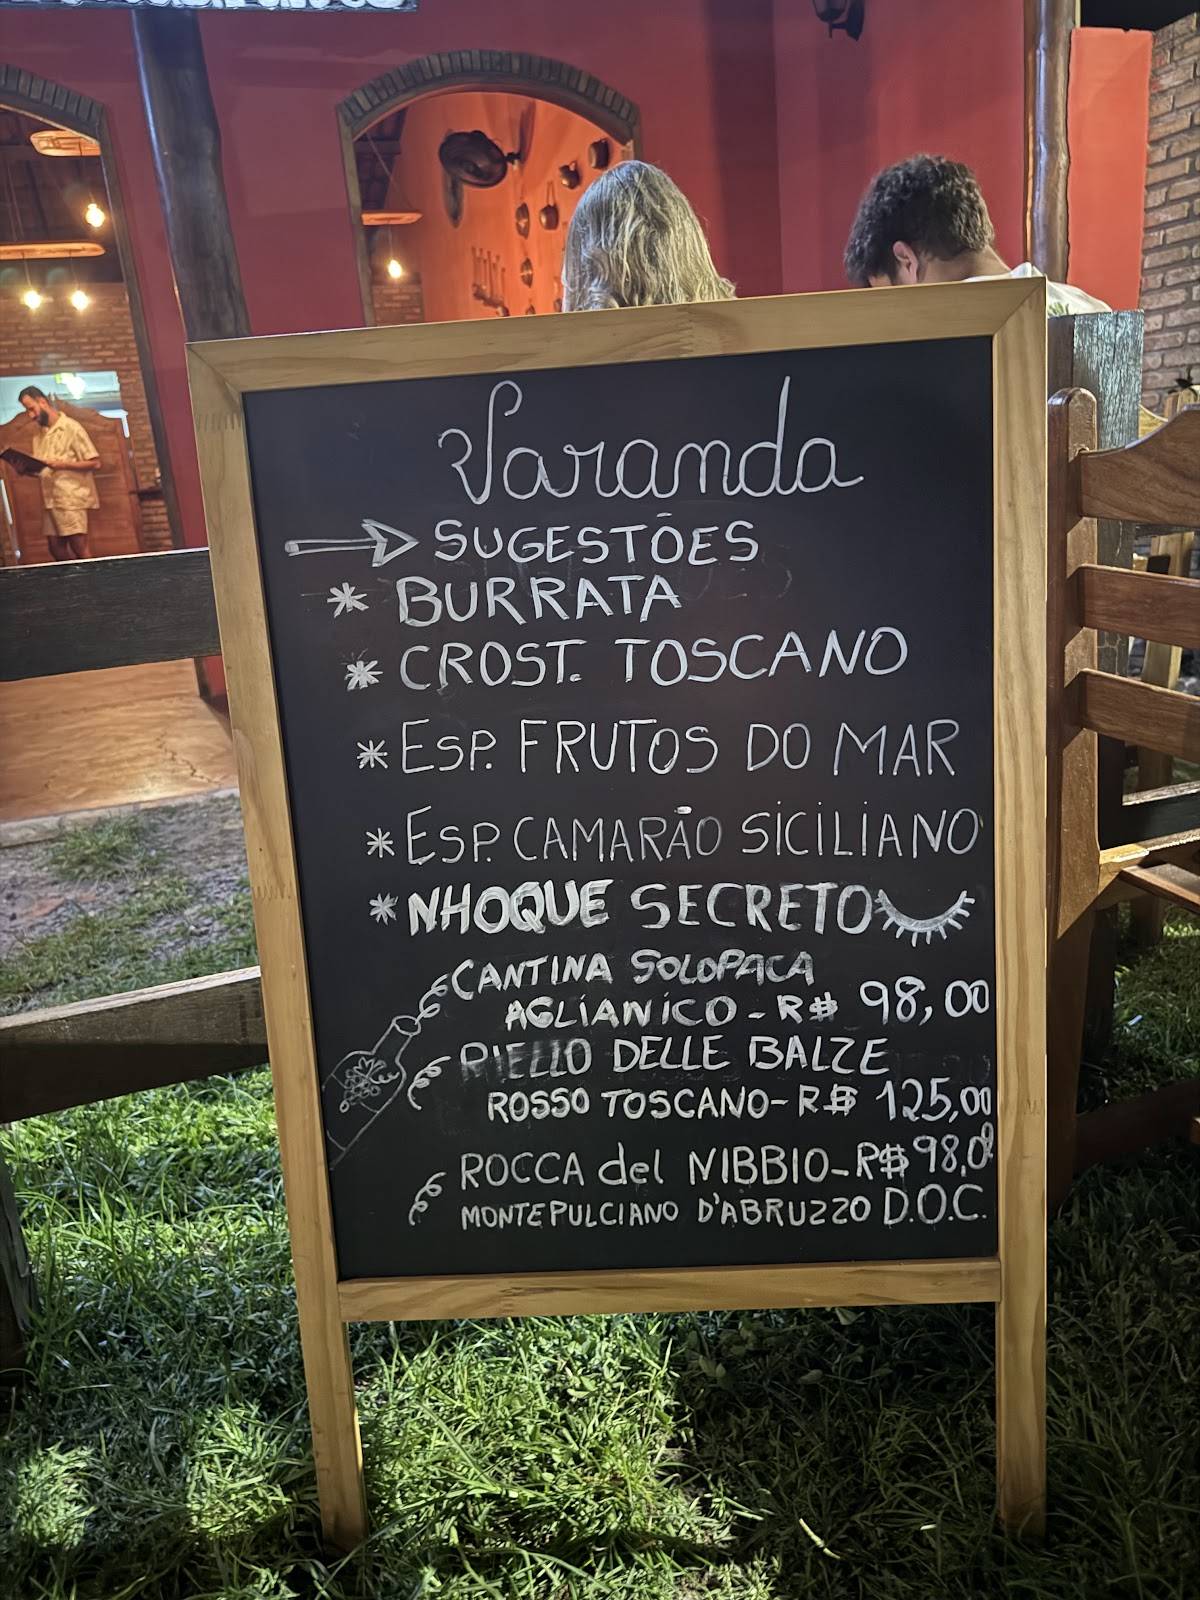 Varanda
SUGESTÕES
* BURRATA
* CROST. TOSCANO
* ESP. FRUTOS DO MAR
* ESP. CAMARÃO SICILIANO
* NHOQUE SECRETO
CANTINA SOLOPACA
AGLIANICO - R$ 98,00
RIELLO DELLE BALZE
ROSSO TOSCANO - R$ 125,00
ROCCA del NIBBIO - R$ 98,00
MONTEPULCIANO D'ABRUZZO D.O.C.